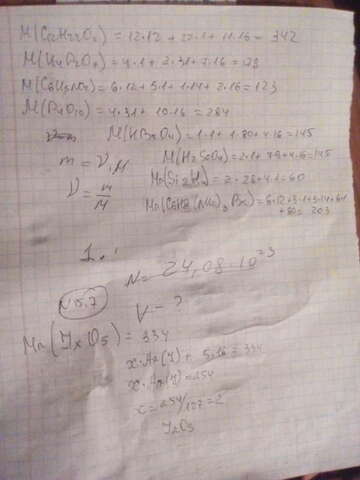 M(C₁₂H₂₂O₁₁) = 12·12 + 22·1 + 11·16 = 342
M(H₄P₂O₇) = 4·1 + 2·31 + 7·16 = 178
M(C₆H₅NO₂) = 6·12 + 5·1 + 1·14 + 2·16 = 123
M(P₄O₁₀) = 4·31 + 10·16 = 284
M(HBrO₄) = 1·1 + 1·80 + 4·16 = 145
m = ν·M
M(H₂SeO₄) = 2·1 + 79 + 4·16 = 145
ν = m/M
Mr(Si₂H₄) = 2·28 + 4·1 = 60
+ 80 = 203
N = 24,08·10²³
N5.7
V - ?
Mr(JₓO₅) = 334
x·Ar(J) + 5·16 = 334
x·Ar(J) = 254
x = 254/127 = 2
J₂O₅